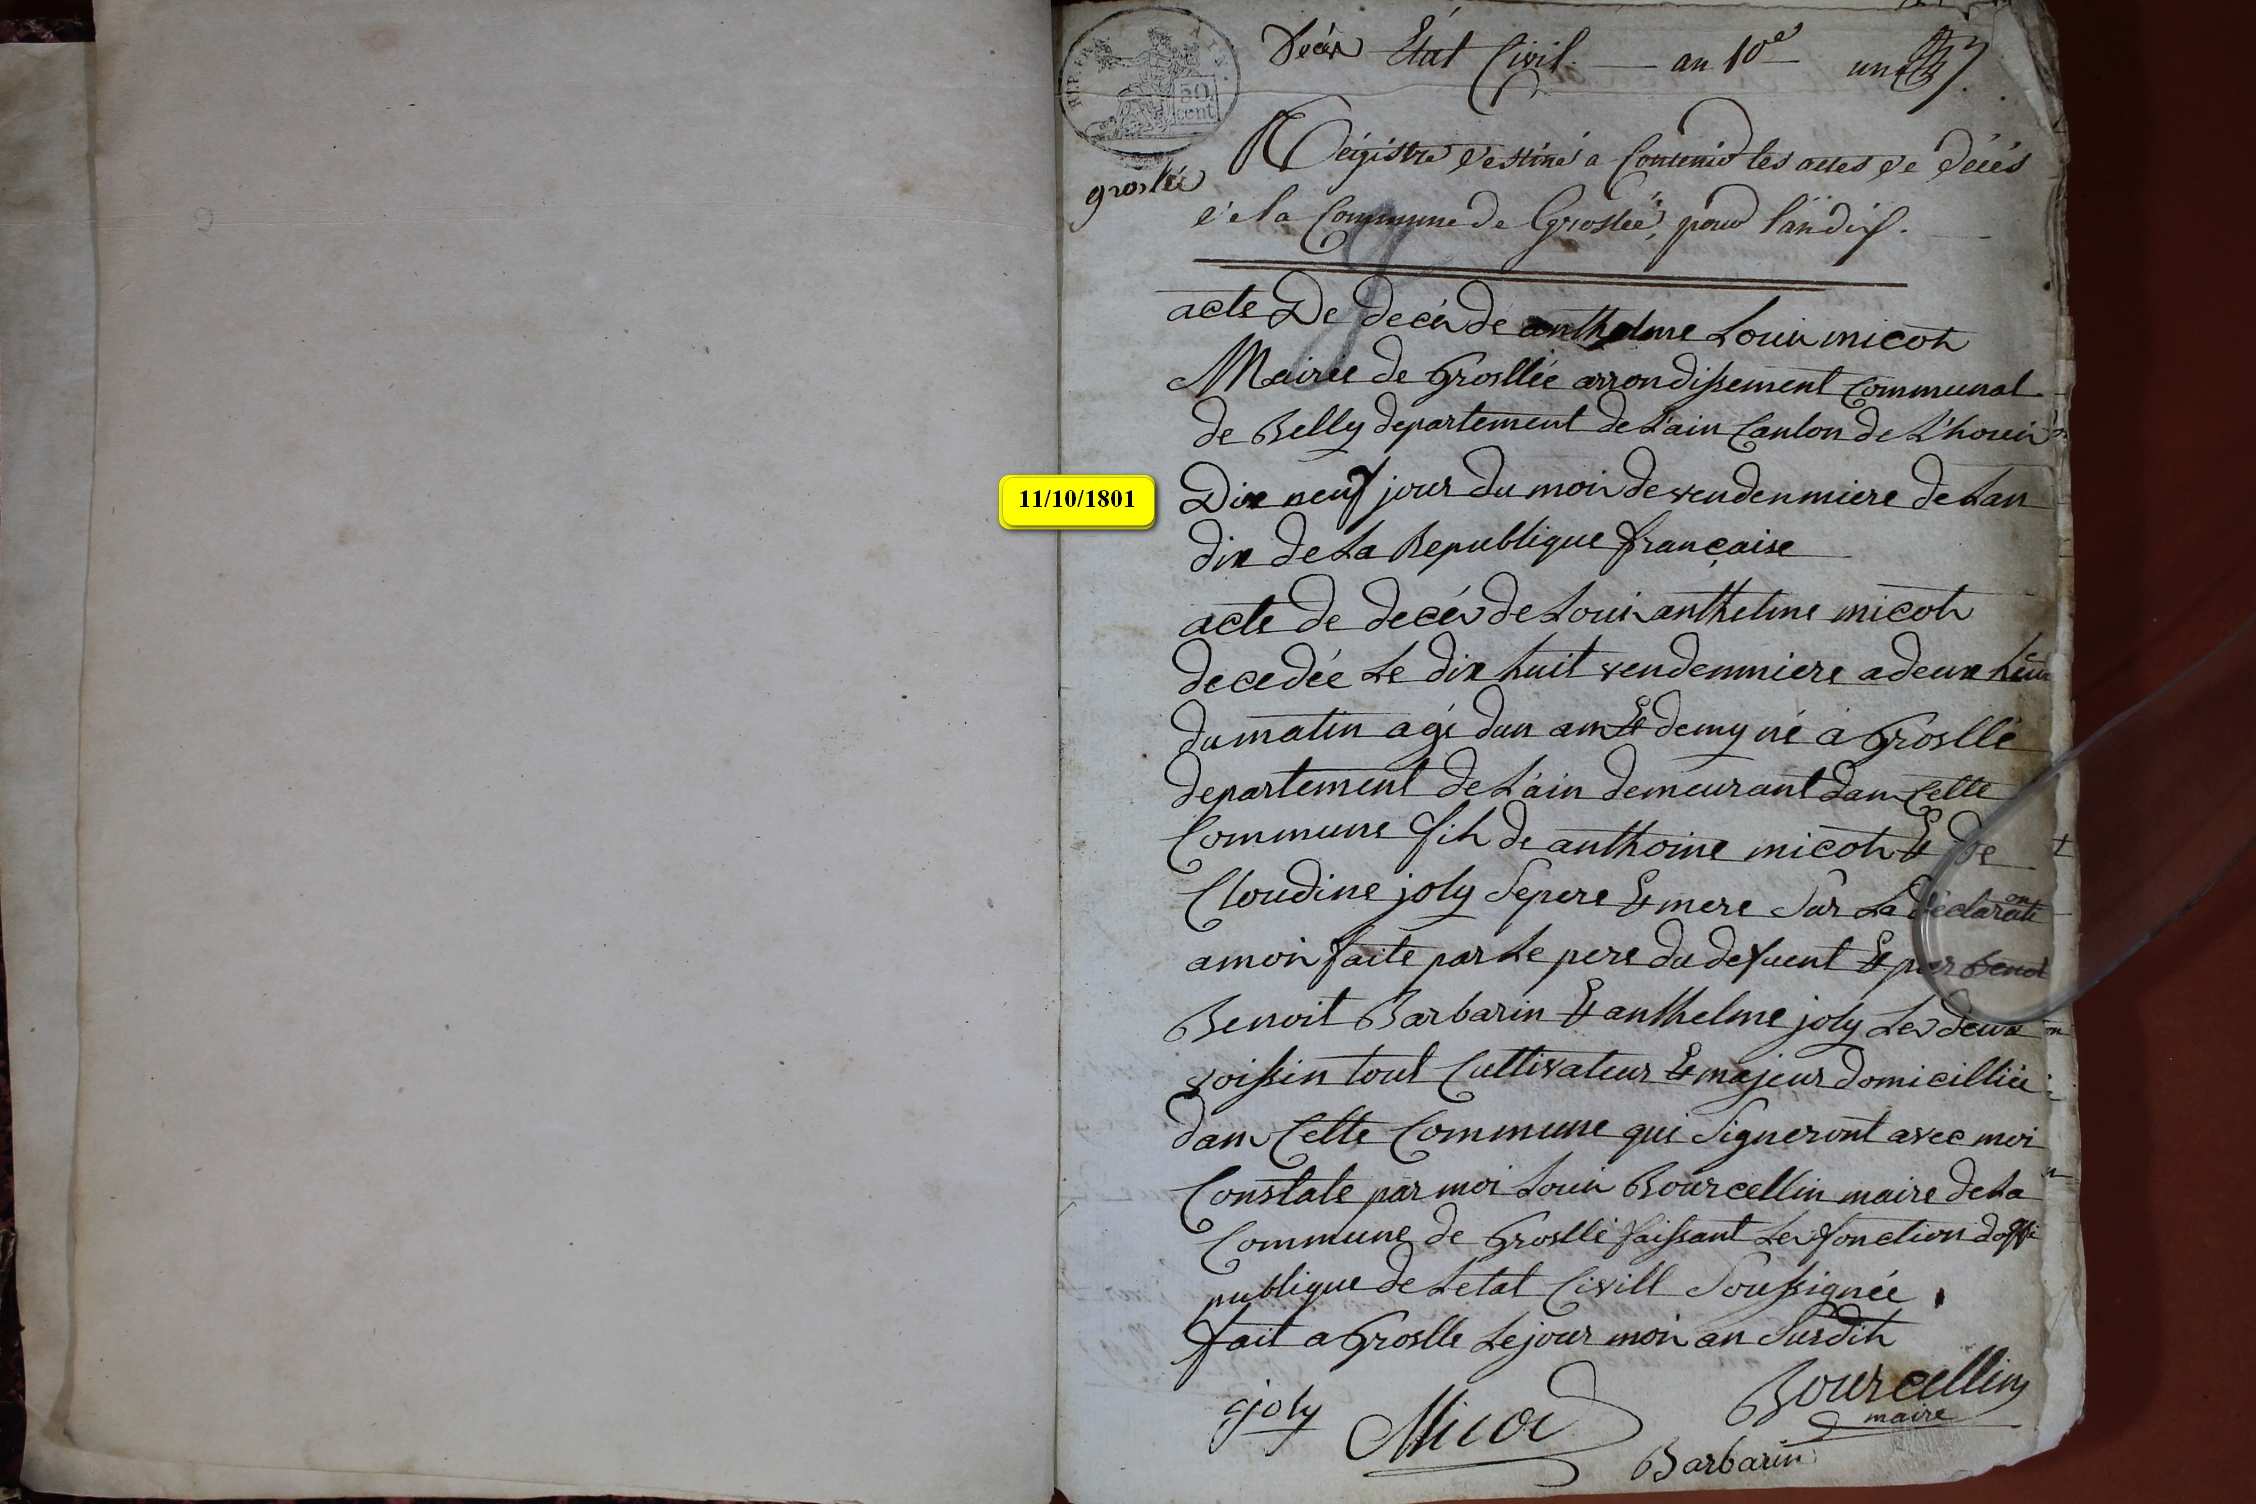 REP. FRA.
50
cent
Décès État Civil. — an 10e un
groslée
Régistre destiné a Contenir les actes de décés
de la Commune de Groslée, pour l'an dix.
acte De decés de anthelme Louis micoh
Mairee de Grosllée arrondissement Communal
de Belly departement de L'ain Canton de L'houis
Dix neuf jour du mois de vendenmiere de Lan
dix de La Republique française
acte de decés de Louis anthelme micoh
decedée Le dix huit vendemmiere a deux heur
du matin agé dun ans et demy né a Groslle
departement de L'ain demeurant dans Cette
Commune fils de anthoine micoh et de
Cloudine joly Sepere et mere Sur La déclaration
a moi faite par Le pere du defuent et par Benoi
Benoit Barbarin et anthelme joly Les deux
voissin tout Cultivateur et majeur domicilliée
dans Cette Commune qui Signeront avec moi
Constate par moi Louis Bourcellin maire de La
Commune de Groslle faissant Les fonction doffi
publique de Letat Civill Soussignée
fait a Groslle Le jour mois an Susdih
joly Micoi Bourcellin
maire
Barbarin
11/10/1801